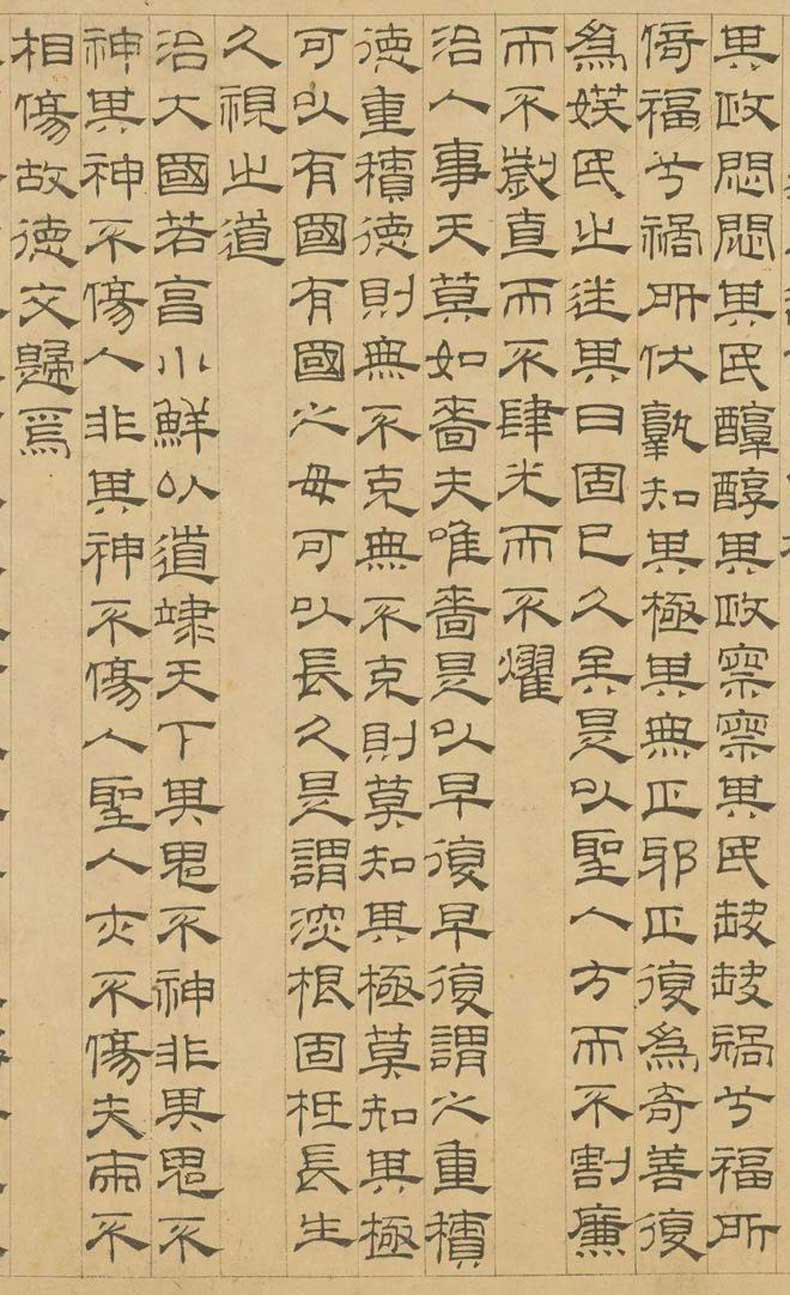 其政悶悶其民醇醇其政察察其民缺缺禍兮福所
倚福兮禍所伏孰知其極其無正邪正復為奇善復
為𡝩民之迷其日固已久矣是以聖人方而不割廉
而不劌直而不肆光而不燿
治人事天莫如嗇夫唯嗇是以早復早復謂之重積
德重積德則無不克無不克則莫知其極莫知其極
可以有國有國之母可以長久是謂深根固柢長生
久視之道
治大國若亯小鮮以道䇐天下其鬼不神非其鬼不
神其神不傷人非其神不傷人聖人亦不傷夫兩不
相傷故德交歸焉